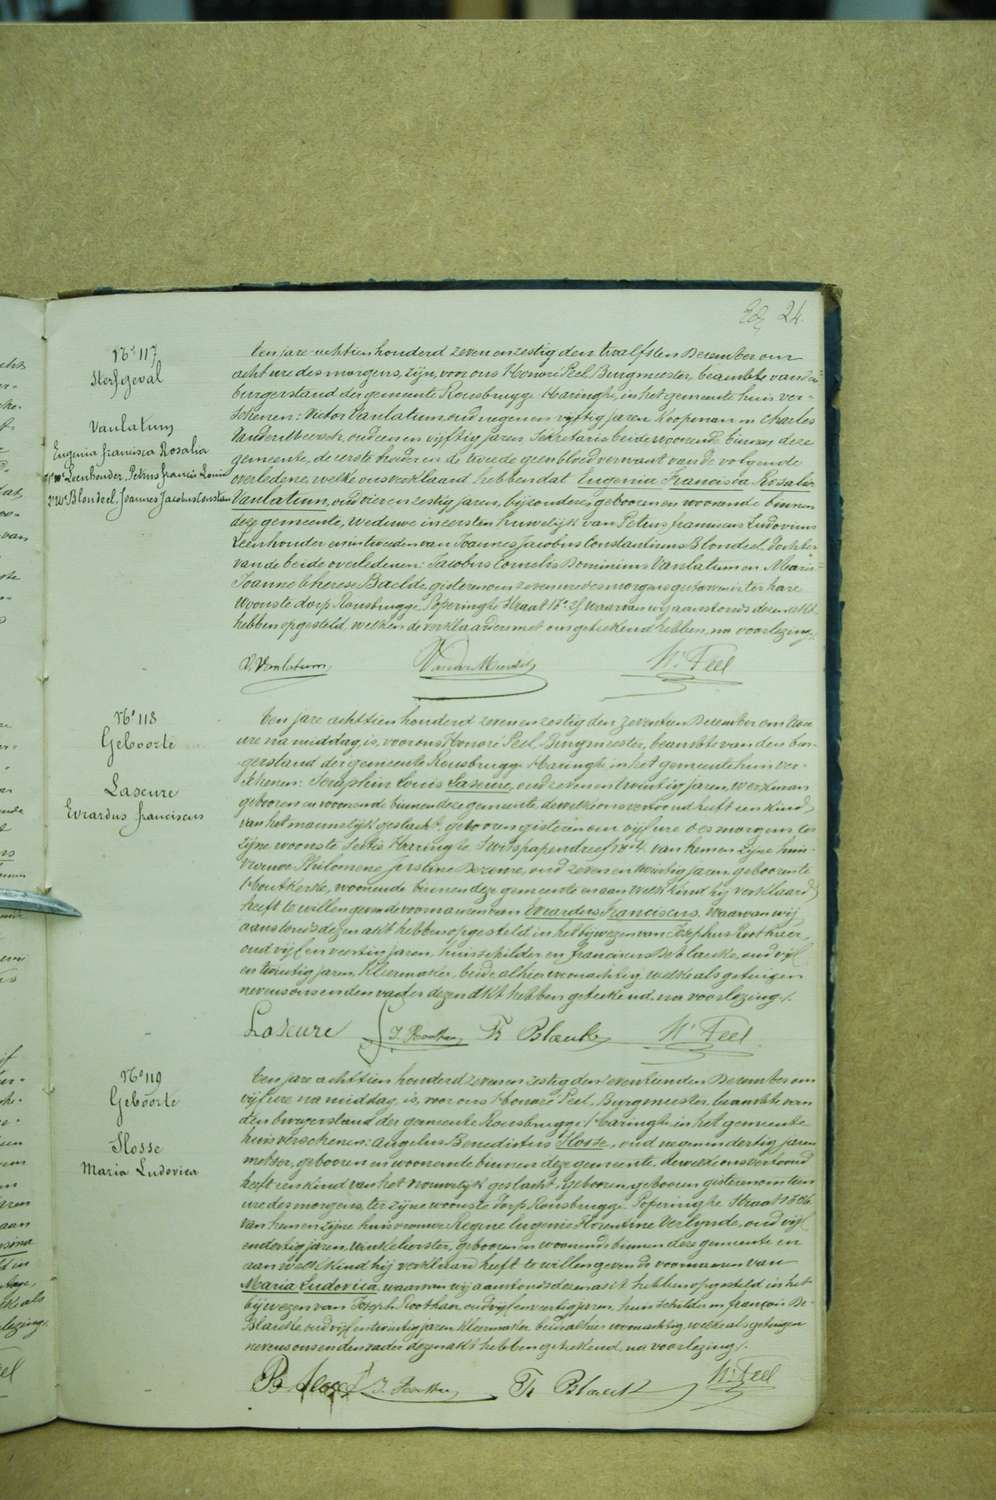 24.
N° 117
Sterfgeval
Vanlatum
Eugenia Francisca Rosalia
1° We Leenhouder, Petrus Francis Louis
2° We Blondeel, Joannes Jacobus Constan
Ten jare achttien honderd zeven en zestig den twaalfsten December om
acht ure des morgens, zijn, voor ons Honoré Feel, Burgmeester, beambte van den
burgerstand der gemeente Rousbrugge-Haringhe, in het gemeente huis ver-
schenen: Victor Vanlatum, oud negen en vijftig jaren, koopman en Charles
oud een en vijftig jaren, Sekretaris beide woonende binnen deze
gemeente, de eerste broeder en de tweede geen bloedverwant van de volgende
overledene, welke ons verklaard hebben dat Eugenia Francisca Rosalia
Vanlatum, oud vier en zestig jaren, bijzondere, geboren en woonende binnen
deze gemeente, Weduwe in eersten huwelijk van Petrus Franciscus Ludovicus
Leenhouder en in tweeden van Joannes Jacobus Constantinus Blondeel, Dochter
van de beide overledenen: Jacobus Cornelis Dominicus Vanlatum en Marie
Joanne Therese Baelde, gisteren om zeven ure des morgens gestorven is ter hare
woonste dorp Rousbrugge, Poperinghe Straat N° 25 waarvan wij aanstonds dezen akt
hebben opgesteld, welken de verklaarders met ons geteekend hebben, na voorlezing.
V. Vanlatum
Hré Feel
N° 118
Geboorte
Lascure
Evrardus Franciscus
Ten jare achttien honderd zeven en zestig den zeventien December om
ure na middag, is, voor ons Honoré Feel, Burgmeester, beambte van den bur-
gerstand der gemeente Rousbrugge-Haringhe in het gemeente huis ver-
schenen: Seraphin Louis Lascure, oud zeven en twintig jaren, werkman
geboren en woonende binnen deze gemeente, dewelke ons vertoond heeft een kind
van het mannelijk geslacht, geboren gisteren om vijf ure des morgens ter
zijne woonste Sectie Haringhe, van hem en zijne huis-
vrouw Philomene Justine oud zeven en twintig jaren geboren te
Houtkerke, woonende binnen deze gemeente en aan welk kind hij verklaard
heeft te willen geven de voornamen van Evrardus Franciscus. Waarvan wij
aanstonds dezen akt hebben opgesteld in het bijwezen van Josephus Roothaer,
oud vijf en veertig jaren, huisschilder en Franciscus De Blaucke, oud vijf
en twintig jaren, Kleermaker, beide alhier woonachtig, welke als getuigen
nevens ons en den vader dezen akt hebben geteekend na voorlezing.
Lascure J. Roothaer Fr Blaucke Hré Feel
N° 119
Geboorte
Slosse
Maria Ludovica
Ten jare achttien honderd zeven en zestig den zeventienden December om
vijf ure na middag, is, voor ons Honoré Feel, Burgmeester, beambte van
den burgerstand der gemeente Rousbrugge-Haringhe in het gemeente
huis verschenen: Angelus Benedictus Slosse, oud negen en dertig jaren
metser, geboren en woonende binnen deze gemeente, dewelke ons vertoond
heeft een kind van het vrouwelijk geslacht, geboren gisteren om tien
ure des morgens, ter zijne woonste dorp Rousbrugge, Poperinghe Straat
van hem en zijne huisvrouw Regine Eugenie Florentine Verlynde, oud vijf
en dertig jaren, Winkelierster, geboren en woonende binnen deze gemeente en
aan welk kind hij verklaard heeft te willen geven de voornamen van
Maria Ludovica, waarvan wij aanstonds dezen akt hebben opgesteld in het
bijwezen van Joseph Roothaer, oud vijf en veertig jaren, huisschilder en François De
Blaucke, oud vijf en twintig jaren, Kleermaker, beide alhier woonachtig, welke als getuigen
nevens ons en den vader dezen akt hebben geteekend, na voorlezing.
B Slosse J. Roothaer Fr Blaucke Hré Feel